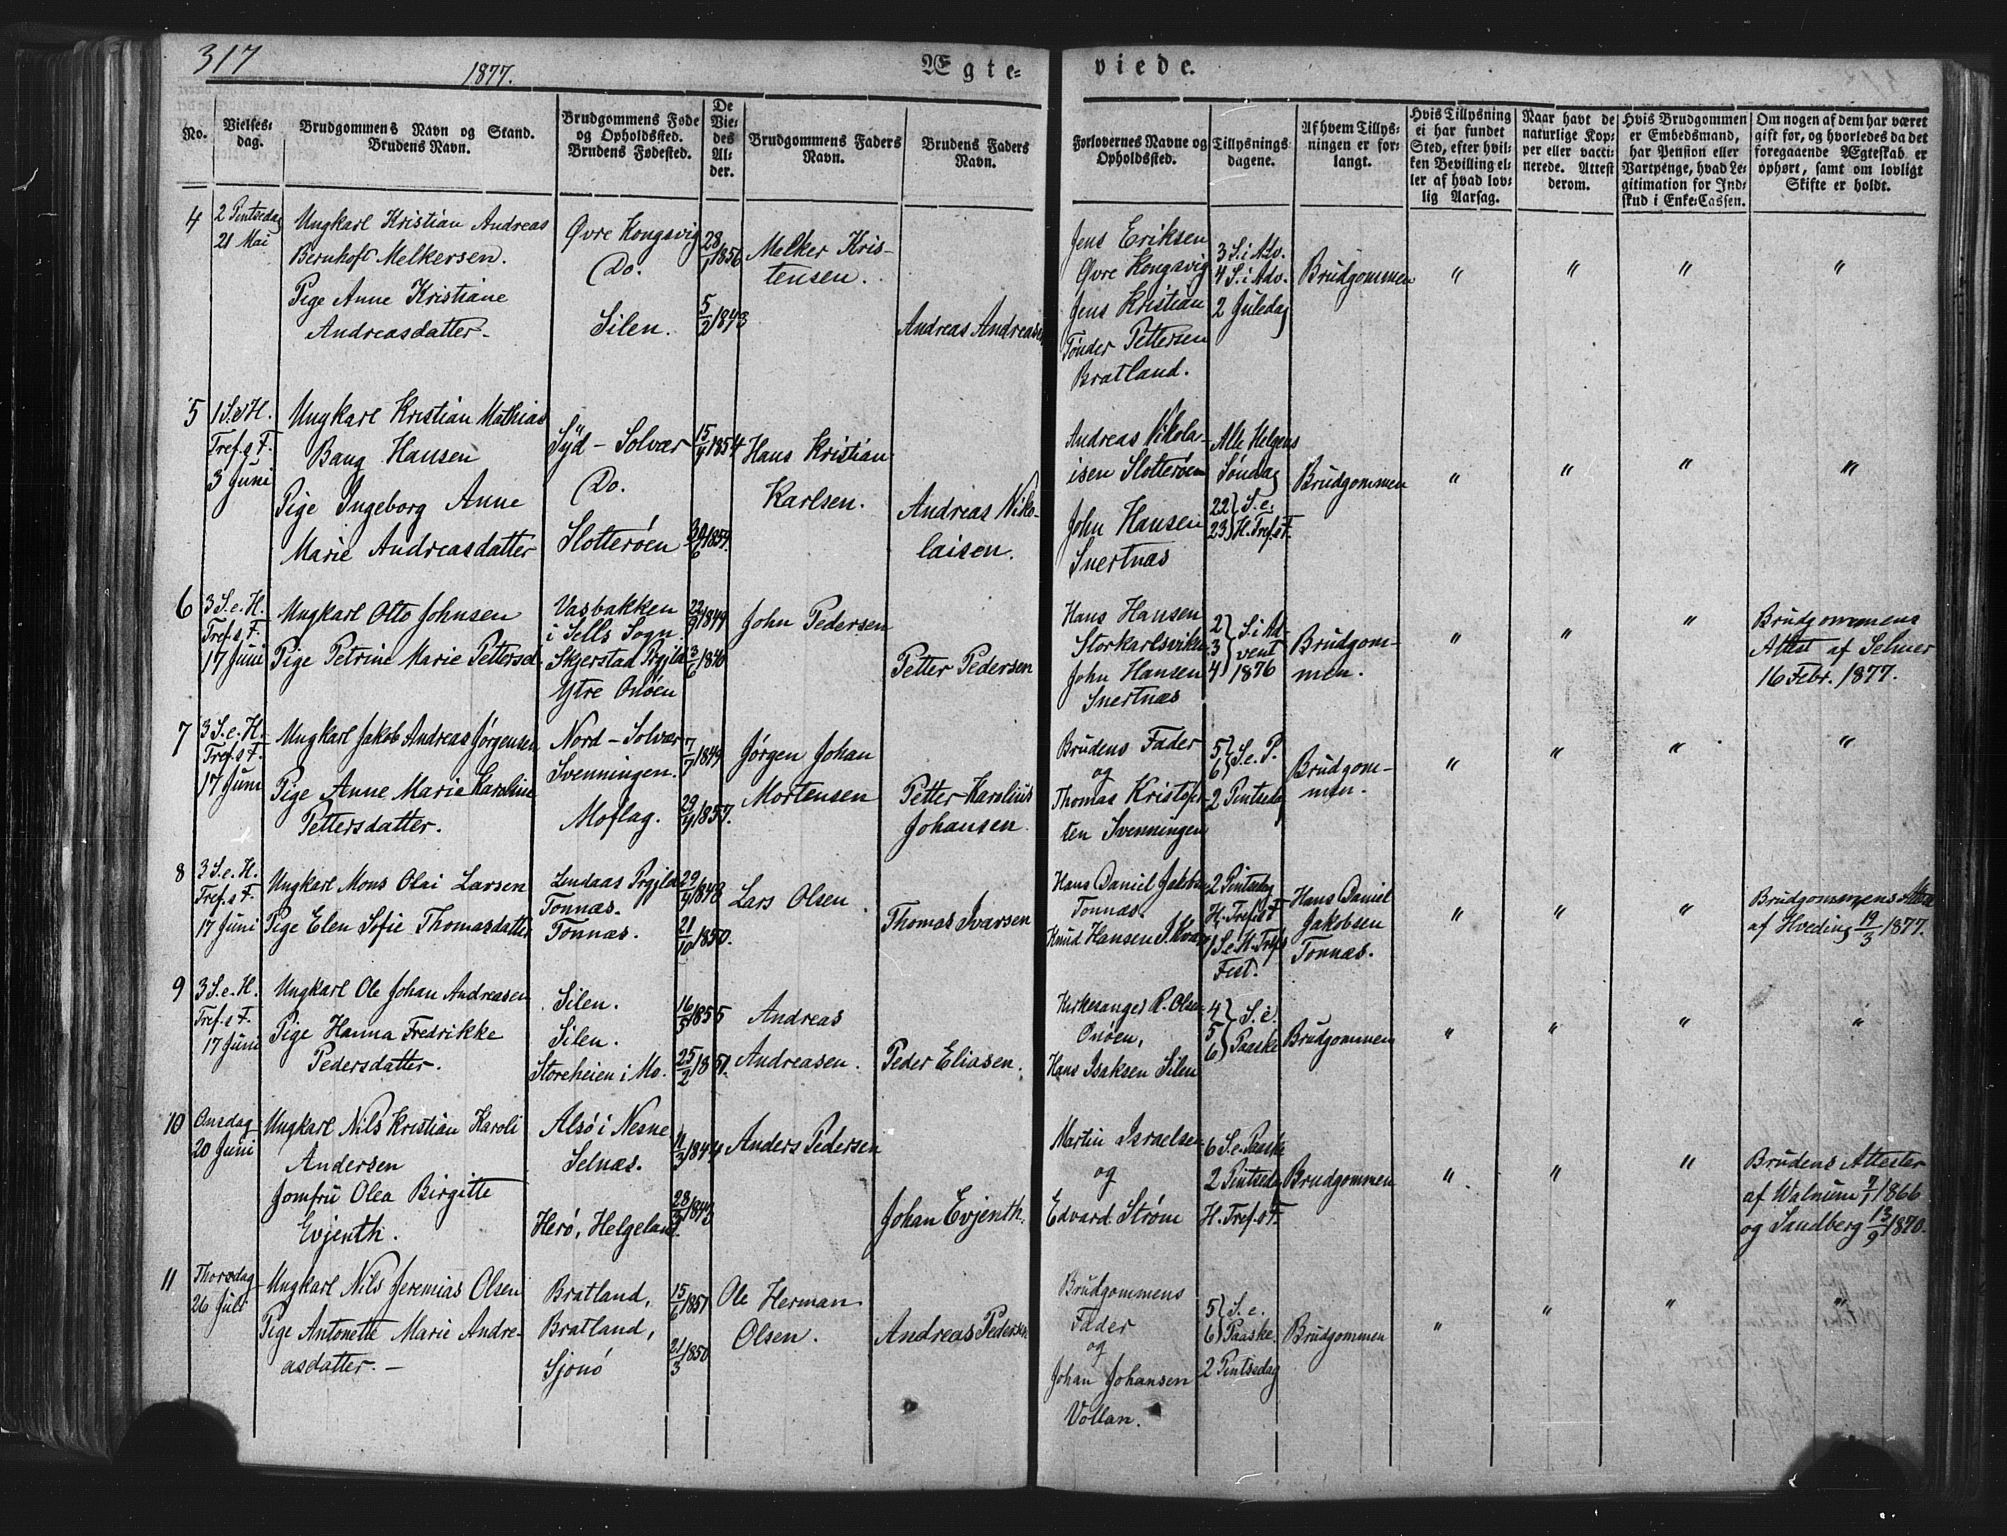 317
1877.
Ægte-
viede.
No.
Vielses-
dag.
Brudgommens Navn og Stand.
Brudens Navn.
Brudgommens Føde
og Opholdssted.
Brudens Fødested.
De
Vie-
des
Al-
der.
Brudgommens Faders
Navn.
Brudens Faders
Navn.
Forlovernes Navne og
Opholdssted.
Tillysnings-
dagene.
Af hvem Tillys-
ningen er for-
langt.
Hvis Tillysning
ei har fundet
Sted, efter hvil-
ken Bevilling el-
ler af hvad lov-
lig Aarsag.
Naar havt de
naturlige Kop-
per eller vacci-
nerede. Attest
derom.
Hvis Brudgommen
er Embedsmand,
har Pension eller
Vartpenge, hvad Le-
gitimation for Ind-
skud i Enke-Cassen.
Om nogen af dem har været
gift før, og hvorledes da det
foregaaende Ægteskab er
ophørt, samt om lovligt
Skifte er holdt.
4
2 Pintsedag
21 Mai
Ungkarl Kristian Andreas
Bernhoft Melkersen.
Pige Anne Kristiane
Andreasdatter.
Øvre Kongsvig
Do.
Silen.
28/1 1856
5/2 1843
Melker Kris-
tensen.
Andreas Andreasen
Jens Eriksen
Øvre Kongsvig
Jens Kristian
Tønder Pettersen
Bratland.
3 S. i Adv.
4 S. i Adv.
2 Juledag
Brudgommen
" " " "
5
1 S. e H.
Tref.s F.
3 Juni
Ungkarl Kristian Mathias
Bang Hansen
Pige Ingeborg Anne
Marie Andreasdatter
Syd-Solvær
Do.
Slotterøen
15/9 1854
1854.
Hans Kristian
Karlsen.
Andreas Niko-
laisen.
Andreas Nikola-
isen Slotterøen
John Hansen
Snertnæs
Alle Helgens
Søndag
22 } S. e.
23 } H. Tref.s F.
Brudgommen
" " " "
6
3 S. e. H.
Tref.s F.
17 Juni
Ungkarl Otto Johnsen
Pige Petrine Marie Pettersd.
Vasbakken
i Sells Sogn
Skjerstad Prgjld
Ytre Onøen
22/3 1849
3/6 1840
John Pedersen
Petter Pedersen
Hans Hansen
Storkarlsviken
John Hansen
Snertnæs
2 } S. i Ad-
3 } vent
4 } 1876
Brudgom-
men.
" " "
Brudgommens
Attest af Selmer
16 Febr. 1877.
7
3 S. e. H.
Tref.s F.
17 Juni
Ungkarl Jakob Andreas Jørgensen
Pige Anne Marie Karoline
Pettersdatter.
Nord-Solvær
Svenningen.
Moflag.
7/7 1849
29/9 1857.
Jørgen Johan
Mortensen
Petter Karolius
Johansen.
Brudens Fader
og
Thomas Kristof-
ten Svenningen
5 } S. e. P.
6 }
2 Pintsedag
Brudgom-
men.
" " " "
8
3 S. e. H.
Tref.s F.
17 Juni
Ungkarl Mons Olai Larsen
Pige Elen Sofie Thomasdatter
Lindaas Prgjld
Tonnæs.
Tonnæs.
29/9 1848
21/10 1850.
Lars Olsen
Thomas Ivarsen
Hans Daniel Jakobsen
Tonnæs.
Knud Hansen
2 Pintsedag
H. Tref.s F
1 S. e. H. Tref.s
Fest.
Hans Daniel
Jakobsen
Tonnæs.
" " "
Brudgommens Attest
af Hveding 19/3 1877.
9
3 S. e. H.
Tref.s F.
17 Juni
Ungkarl Ole Johan Andreasen
Pige Hanna Fredrikke
Pedersdatter.
Silen.
Silen.
Storeheien i Mo.
16/3 1855
25/2 1851.
Andreas
Andreasen.
Peder Eliasen.
Kirkesanger R. Olsen
Onøen,
Hans Isaksen Silen
4 } S. e.
5 }
6 } Paaske
Brudgommen
" " " "
10
Onsdag
20 Juni
Ungkarl Nils Kristian Karoli
Andersen
Jomfru Olea Birgitte
Evjenth.
Alsø i Nesne
Selnæs.
Herø, Helgeland.
11/3 1844
28/3 1843
Anders Pedersen
Johan Evjenth.
Martin Israelsen
og
Edvard Strøm
6 S. e. Paaske
2 Pintsedag
H. Tref.s F.
Brudgommen
" " "
Brudens Attester
af Walnum 7/7 1866
og Sandberg 13/9 1870.
11
Thorsdag
26 Juli
Ungkarl Nils Jeremias Olsen
Pige Antonette Marie Andre-
asdatter. —
Bratland,
Bratland,
Sjonø
15/6 1851
21/3 1850
Ole Herman
Olsen.
Andreas Pedersen
Brudgommens
Fader
og
Johan Johansen
Vollan.
5 } S. e.
6 } Paaske.
2 Pintsedag
Brudgommen
" " " "